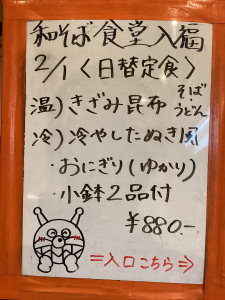 和そば食堂入福
2/1〈日替定食〉
温)きざみ昆布 そば・うどん
冷)冷やしたぬき風
・おにぎり(ゆかり)
・小鉢2品付
¥880.-
=入口こちら⇒